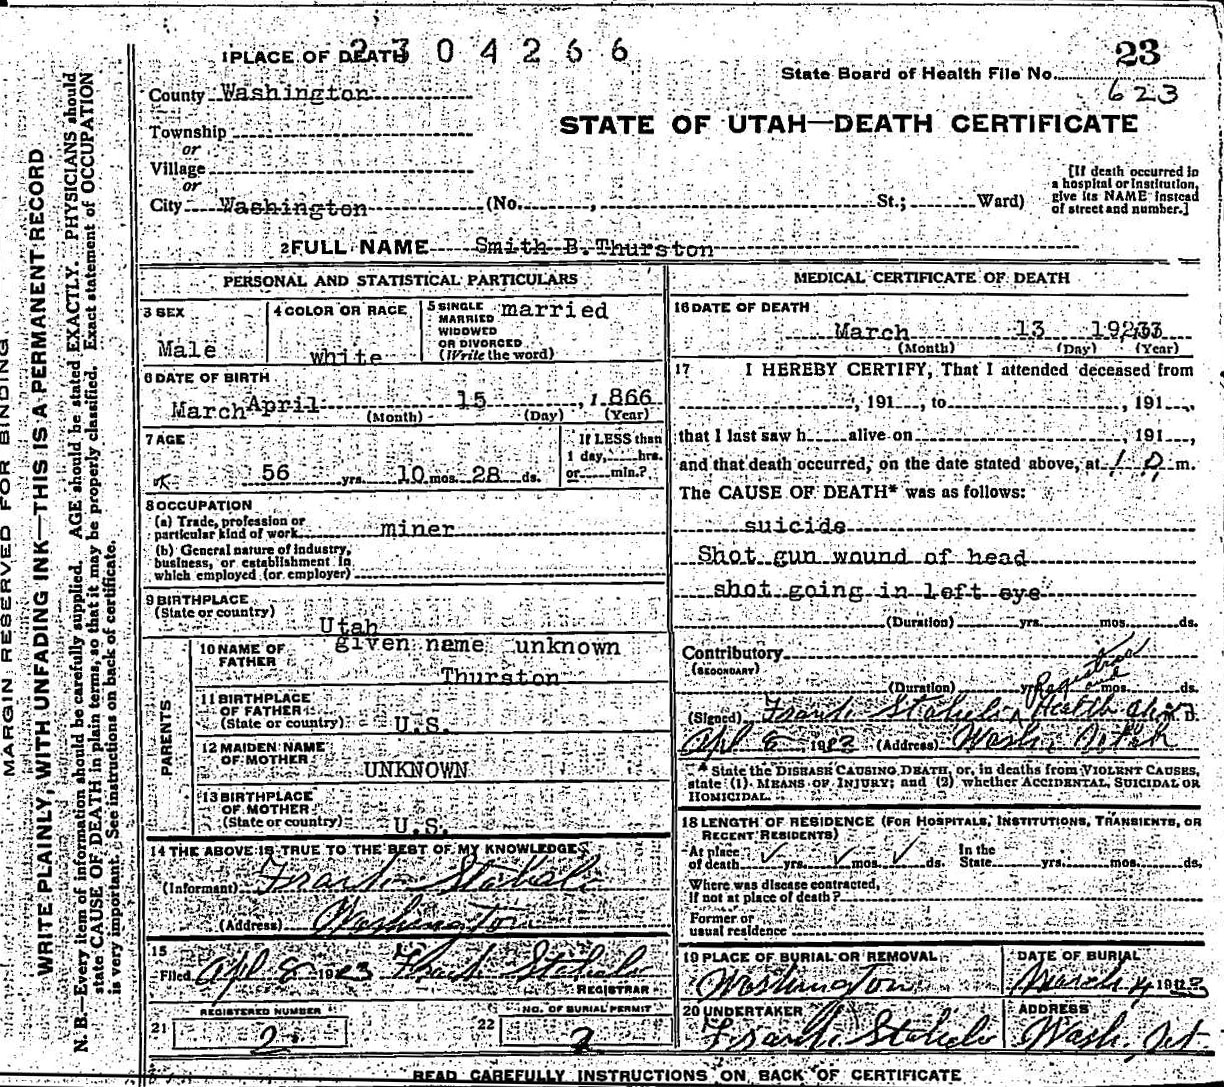 2304266
1 PLACE OF DEATH
23
State Board of Health File No.
623
County Washington
STATE OF UTAH—DEATH CERTIFICATE
Township
or
Village
or
City Washington (No. , St.; Ward)
[If death occurred in
a hospital or institution,
give its NAME instead
of street and number.]
2 FULL NAME Smith B. Thurston
PERSONAL AND STATISTICAL PARTICULARS
3 SEX
Male
4 COLOR OR RACE
white
5 SINGLE
MARRIED
WIDOWED
OR DIVORCED
(Write the word)
married
6 DATE OF BIRTH
March April 15, 1866
(Month) (Day) (Year)
7 AGE
56 yrs. 10 mos. 28 ds.
If LESS than
1 day, hrs.
or min.?
8 OCCUPATION
(a) Trade, profession or
particular kind of work miner
(b) General nature of industry,
business, or establishment in
which employed (or employer)
9 BIRTHPLACE
(State or country)
Utah
PARENTS
10 NAME OF
FATHER
given name unknown
Thurston
11 BIRTHPLACE
OF FATHER
(State or country) U.S.
12 MAIDEN NAME
OF MOTHER
UNKNOWN
13 BIRTHPLACE
OF MOTHER
(State or country) U.S.
14 THE ABOVE IS TRUE TO THE BEST OF MY KNOWLEDGE
(Informant) Frank Staheli
(Address) Washington
15
Filed Apl 8 1923 Frank Staheli
REGISTRAR
21 REGISTERED NUMBER
2
22 NO. OF BURIAL PERMIT
2
MEDICAL CERTIFICATE OF DEATH
16 DATE OF DEATH
March 13
(Month) (Day) (Year)
17 I HEREBY CERTIFY, That I attended deceased from
, 191 , to , 191 ,
that I last saw h alive on , 191 ,
and that death occurred, on the date stated above, at m.
The CAUSE OF DEATH* was as follows:
suicide
Shot gun wound of head
shot going in left eye
(Duration) yrs. mos. ds.
Contributory
(SECONDARY)
(Duration) yrs. mos. ds.
Registrar and
(Signed) Frank Staheli Health M. D.
Apl 8 1923 (Address) Wash, Utah
* State the DISEASE CAUSING DEATH, or, in deaths from VIOLENT CAUSES,
state (1) MEANS OF INJURY; and (2) whether ACCIDENTAL, SUICIDAL OR
HOMICIDAL.
18 LENGTH OF RESIDENCE (FOR HOSPITALS, INSTITUTIONS, TRANSIENTS, OR
RECENT RESIDENTS)
At place
of death yrs. mos. ds.
In the
State yrs. mos. ds.
Where was disease contracted,
if not at place of death?
Former or
usual residence
19 PLACE OF BURIAL OR REMOVAL
Washington
DATE OF BURIAL
March
20 UNDERTAKER
Frank Staheli
ADDRESS
Wash, Ut.
READ CAREFULLY INSTRUCTIONS ON BACK OF CERTIFICATE
MARGIN RESERVED FOR BINDING
WRITE PLAINLY, WITH UNFADING INK—THIS IS A PERMANENT RECORD
N. B.—Every item of information should be carefully supplied. AGE should be stated EXACTLY. PHYSICIANS should
state CAUSE OF DEATH in plain terms, so that it may be properly classified. Exact statement of OCCUPATION
is very important. See instructions on back of certificate.